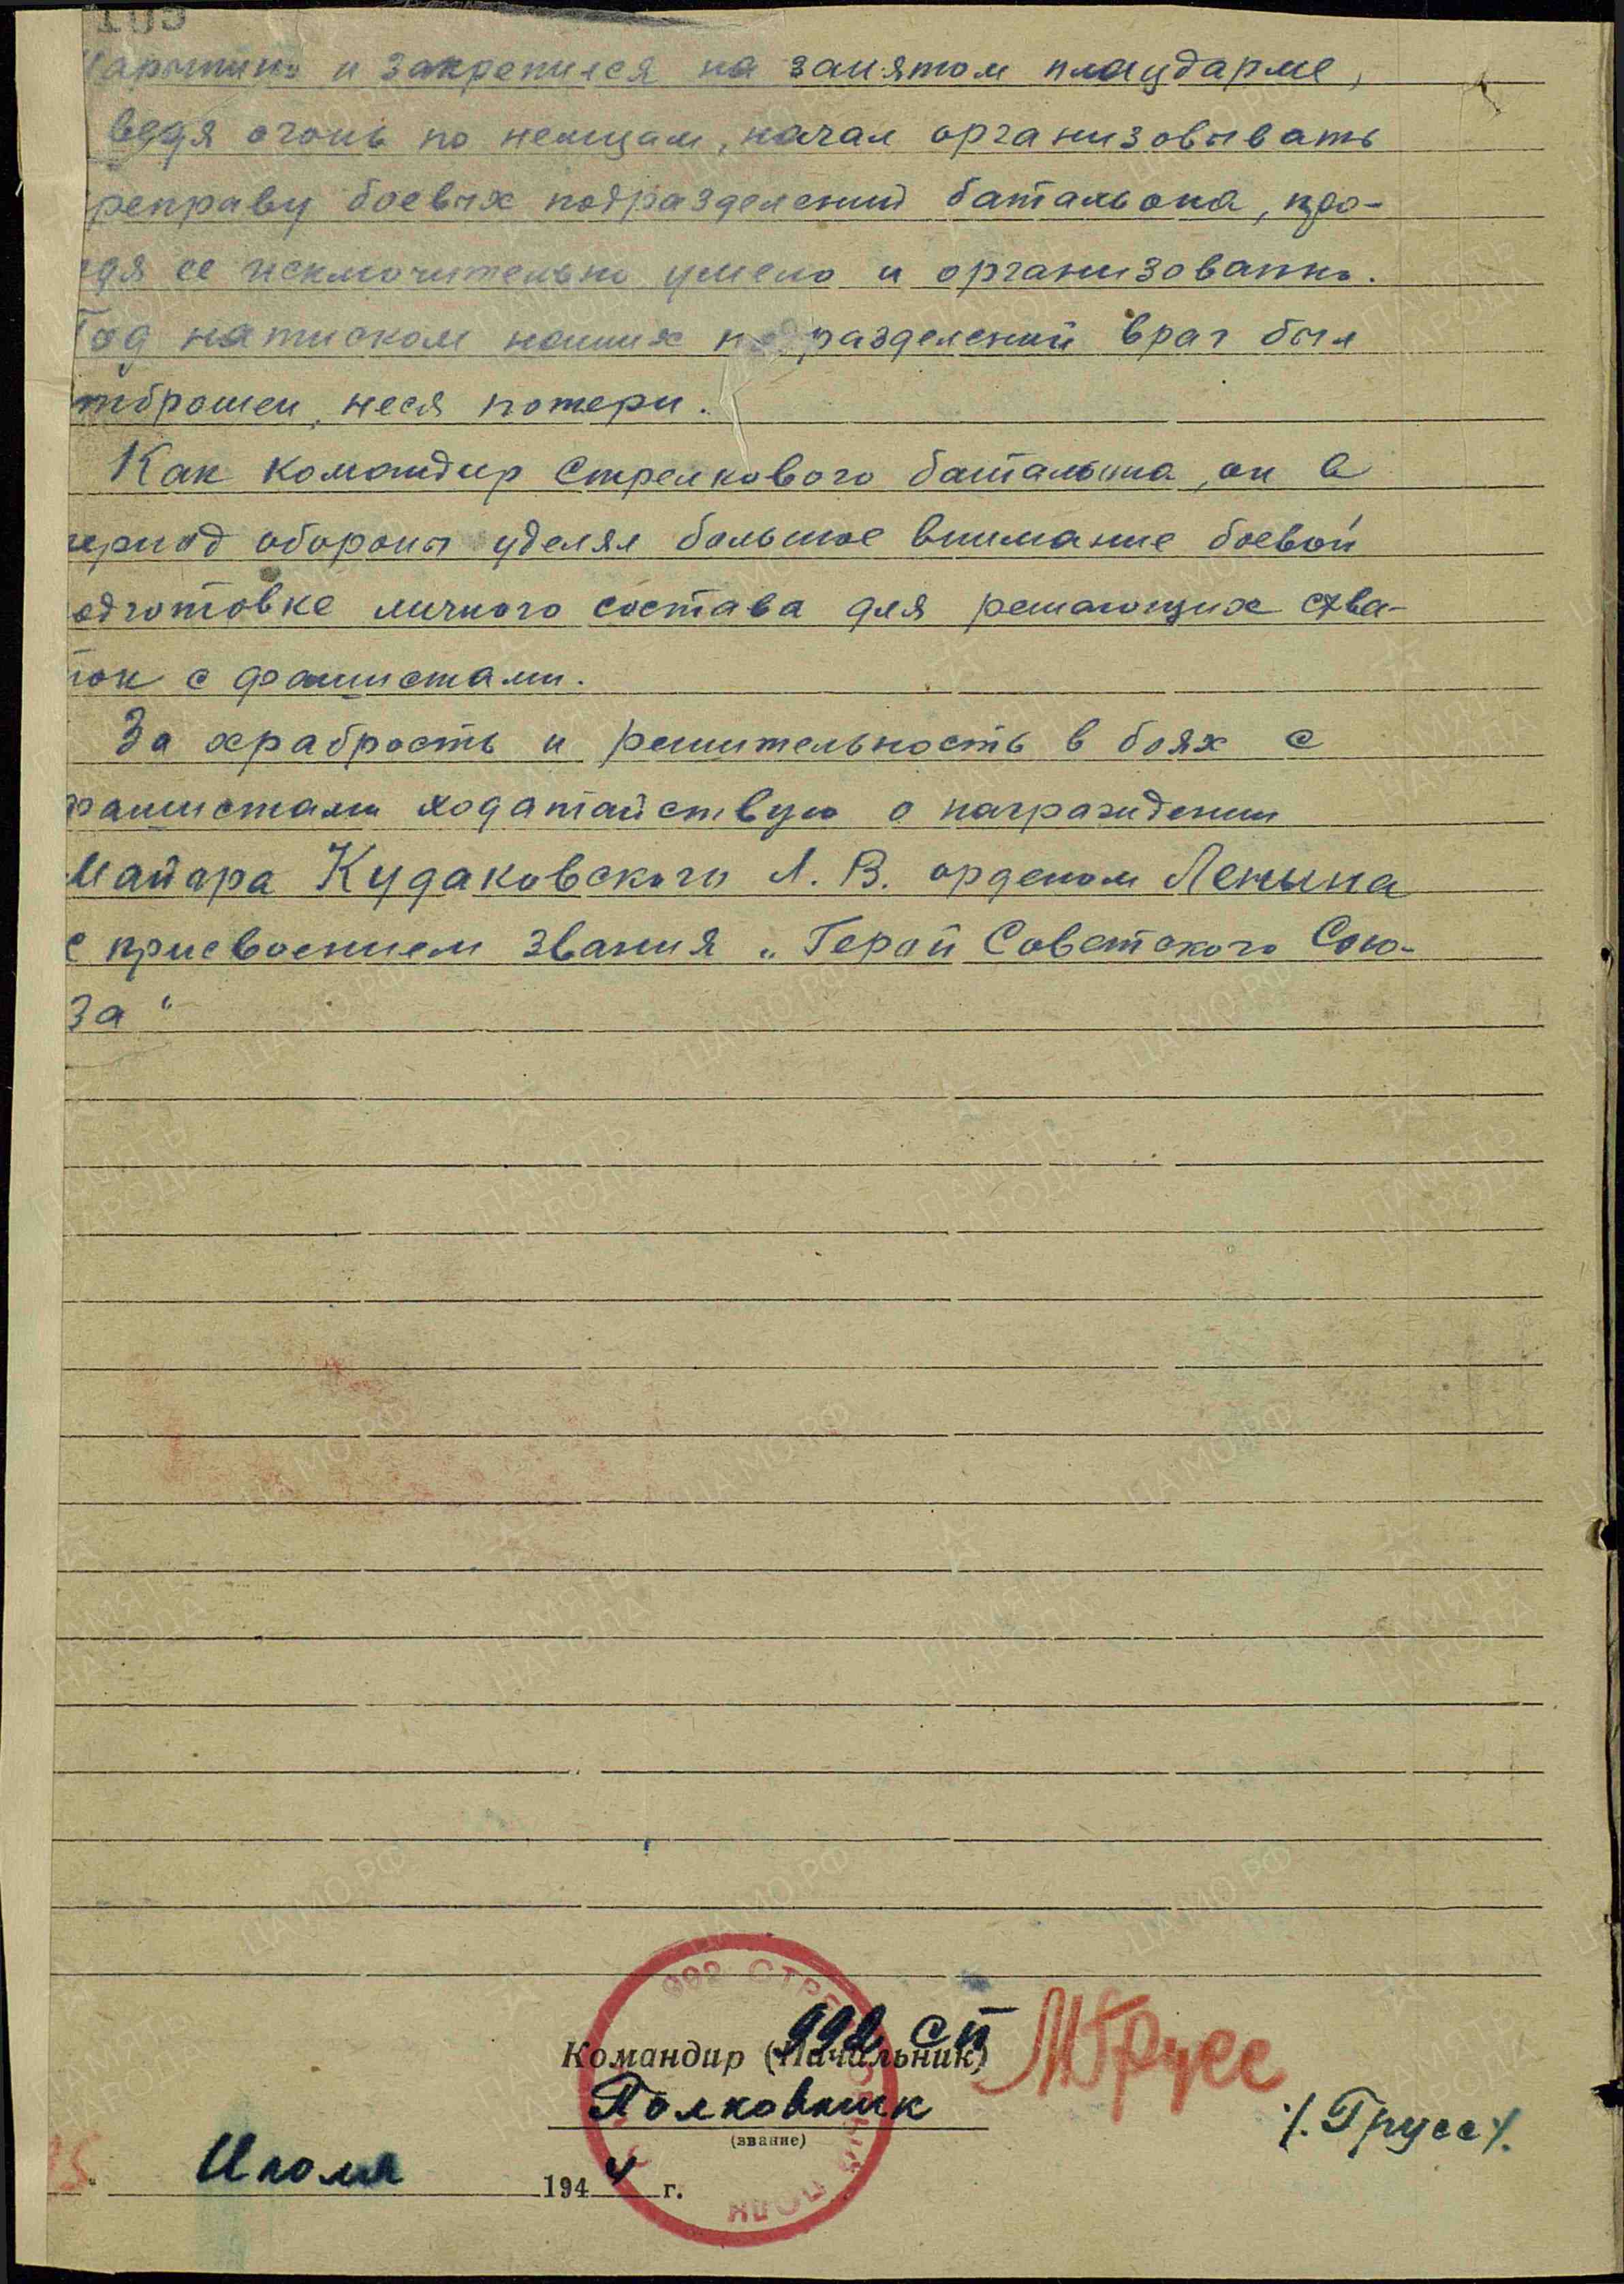 105
и закрепился на занятом плацдарме,
ведя огонь по немцам, начал организовывать
реправу боевых подразделений батальона, про-
едя ее исключительно умело и организованно.
Под натиском наших подразделений враг был
тброшен, неся потери.
Как командир стрелкового батальона, он в
период обороны уделял большое внимание боевой
одготовке личного состава для решающих схва-
ток с фашистами.
За храбрость и решительность в боях с
фашистами ходатайствую о награждении
Майора Кудаковского Л. В. орденом Ленина
с присвоением звания „Герой Советского Сою-
за"
992 СТРЕЛКОВЫЙ ПОЛК
992 СП
Командир (Начальник) МГрусс
Полковник
(звание)
/. Грусс /.
15 " Июля 1944 г.
ПАМЯТЬ НАРОДА
ЦАМО РФ